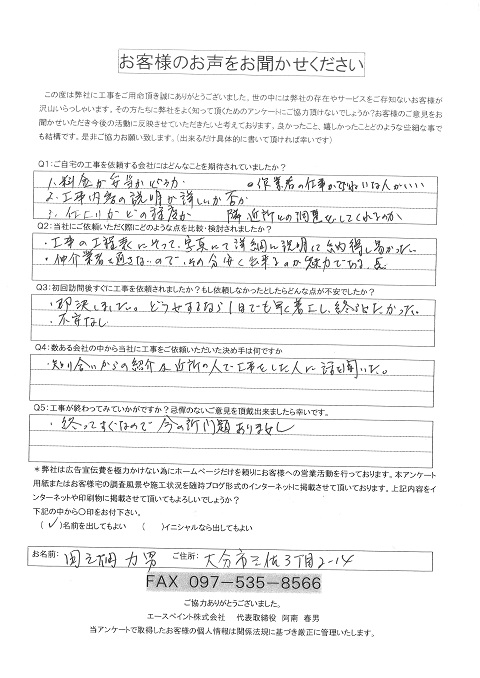 お客様のお声をお聞かせください
この度は弊社に工事をご用命頂き誠にありがとうございました。世の中には弊社の存在やサービスをご存知ないお客様が
沢山いらっしゃいます。その方たちに弊社をよく知って頂くためのアンケートにご協力頂けないでしょうか?お客様のご意見をお
聞かせいただき今後の活動に反映させていただきたいと考えております。良かったこと、嬉しかったことどのような些細な事で
も結構です。是非ご協力お願い致します。(出来るだけ具体的に書いて頂ければ幸いです)
Q1:ご自宅の工事を依頼する会社にはどんなことを期待されていましたか?
1. 料金が妥当かどうか ・作業者の仕事がていねいな人がいい
2. 工事内容の説明が詳しいか否か
3. 仕上りがどの程度か 隣近所との調整をしてくれるか
Q2:当社にご依頼いただく際にどのような点を比較・検討されましたか?
・工事の工程表にそって、写真にて詳細に説明して納得し易かった。
・仲介業者を通さないので、その分安く出来るのが魅力である点
Q3:初回訪問後すぐに工事を依頼されましたか?もし依頼しなかったとしたらどんな点が不安でしたか?
・即決しました。どうせするなら1日でも早く着工し、終らせたかった。
・不安なし
Q4:数ある会社の中から当社に工事をご依頼いただいた決め手は何ですか
・知り合いからの紹介や近所の人で工事をした人に話を聞いた。
Q5:工事が終わってみていかがですか?忌憚のないご意見を頂戴出来ましたら幸いです。
・終ってすぐなので今の所問題ありません
*弊社は広告宣伝費を極力かけない為にホームページだけを頼りにお客様への営業活動を行っております。本アンケート
用紙またはお客様宅の調査風景や施工状況を随時ブログ形式のインターネットに掲載させて頂いております。上記内容をイ
ンターネットや印刷物に掲載させて頂いてもよろしいでしょうか?
下記の中から○印をお付下さい。
(✓)名前を出してもよい ( )イニシャルなら出してもよい
お名前: 力男 ご住所: 大分市三佐3丁目2-14
FAX 097-535-8566
ご協力ありがとうございました。
エースペイント株式会社 代表取締役 阿南 春男
当アンケートで取得したお客様の個人情報は関係法規に基づき厳正に管理いたします。